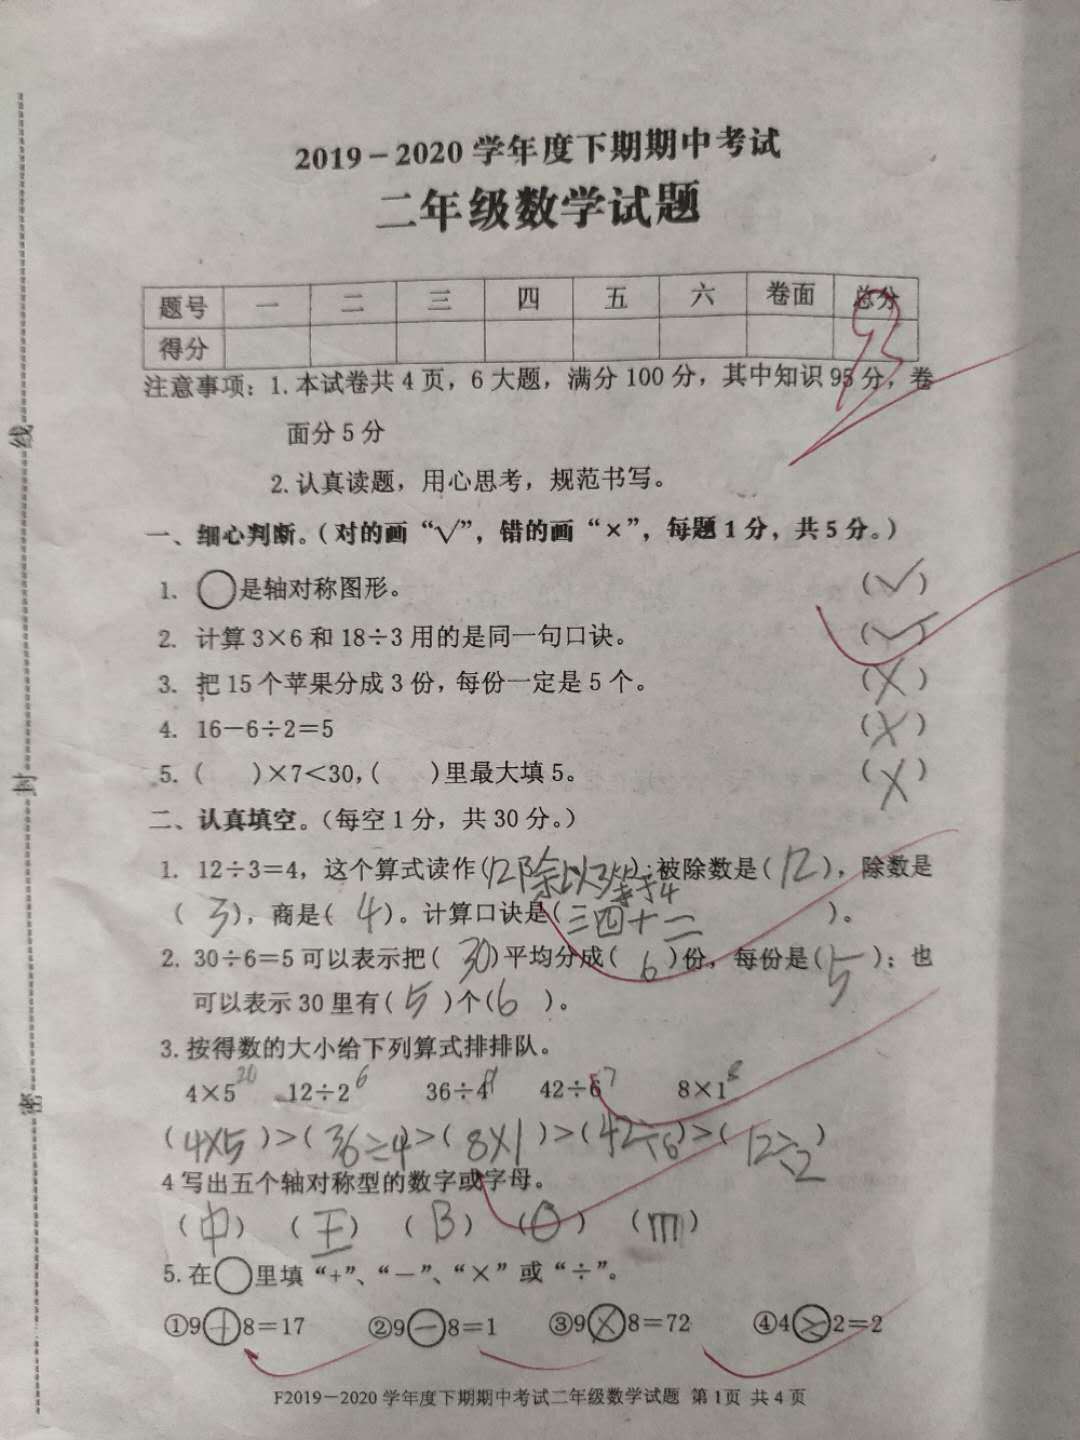 2019－2020 学年度下期期中考试
二年级数学试题
题号 一 二 三 四 五 六 卷面 总分
得分 93
注意事项：1.本试卷共 4 页，6 大题，满分 100 分，其中知识 95 分，卷
面分 5 分
2.认真读题，用心思考，规范书写。
一、细心判断。（对的画“√”，错的画“×”，每题 1 分，共 5 分。）
1. ○是轴对称图形。 (√)
2. 计算 3×6 和 18÷3 用的是同一句口诀。 (√)
3. 把 15 个苹果分成 3 份，每份一定是 5 个。 (×)
4. 16－6÷2＝5 (×)
5. ( )×7＜30，( )里最大填 5。 (×)
二、认真填空。（每空 1 分，共 30 分。）
1. 12÷3＝4，这个算式读作(12除以3等于4)；被除数是(12)，除数是
(3)，商是(4)。计算口诀是(三四十二)。
2. 30÷6＝5 可以表示把(30)平均分成(6)份，每份是(5)；也
可以表示 30 里有(5)个(6)。
3.按得数的大小给下列算式排排队。
4×5 20 12÷2 6 36÷4 9 42÷6 7 8×1 8
(4×5)＞(36÷4)＞(8×1)＞(42÷6)＞(12÷2)
4 写出五个轴对称型的数字或字母。
(中) (王) (B) (O) (m)
5.在○里填“+”、“－”、“×”或“÷”。
①9+8＝17 ②9－8＝1 ③9×8＝72 ④4 2＝2
F2019－2020 学年度下期期中考试二年级数学试题 第 1页 共 4 页
线
封
密